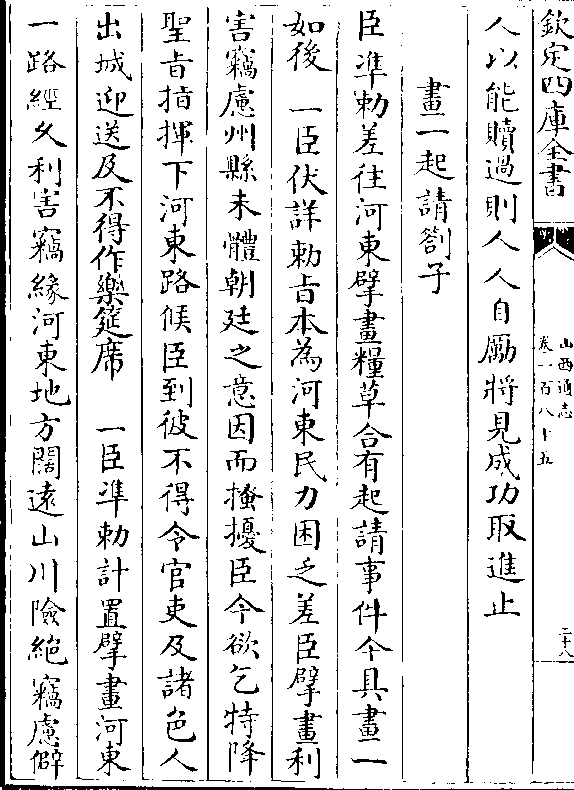 欽定四庫全書
山西通志
卷一百八十五
二十八
人以能贖過則人人自勵將見成功取進止
畫一起請劄子
臣準勅差往河東擘畫糧草合有起請事件今具畫一
如後　一臣伏詳勅旨本為河東民力困乏差臣擘畫利
害竊慮州縣未體朝廷之意因而搔擾臣今欲乞特降
聖旨指揮下河東路候臣到彼不得令官吏及諸色人
出城迎送及不得作樂筵席　一臣準勅計置擘畫河東
一路經久利害竊緣河東地方闊遠山川險絶竊慮僻